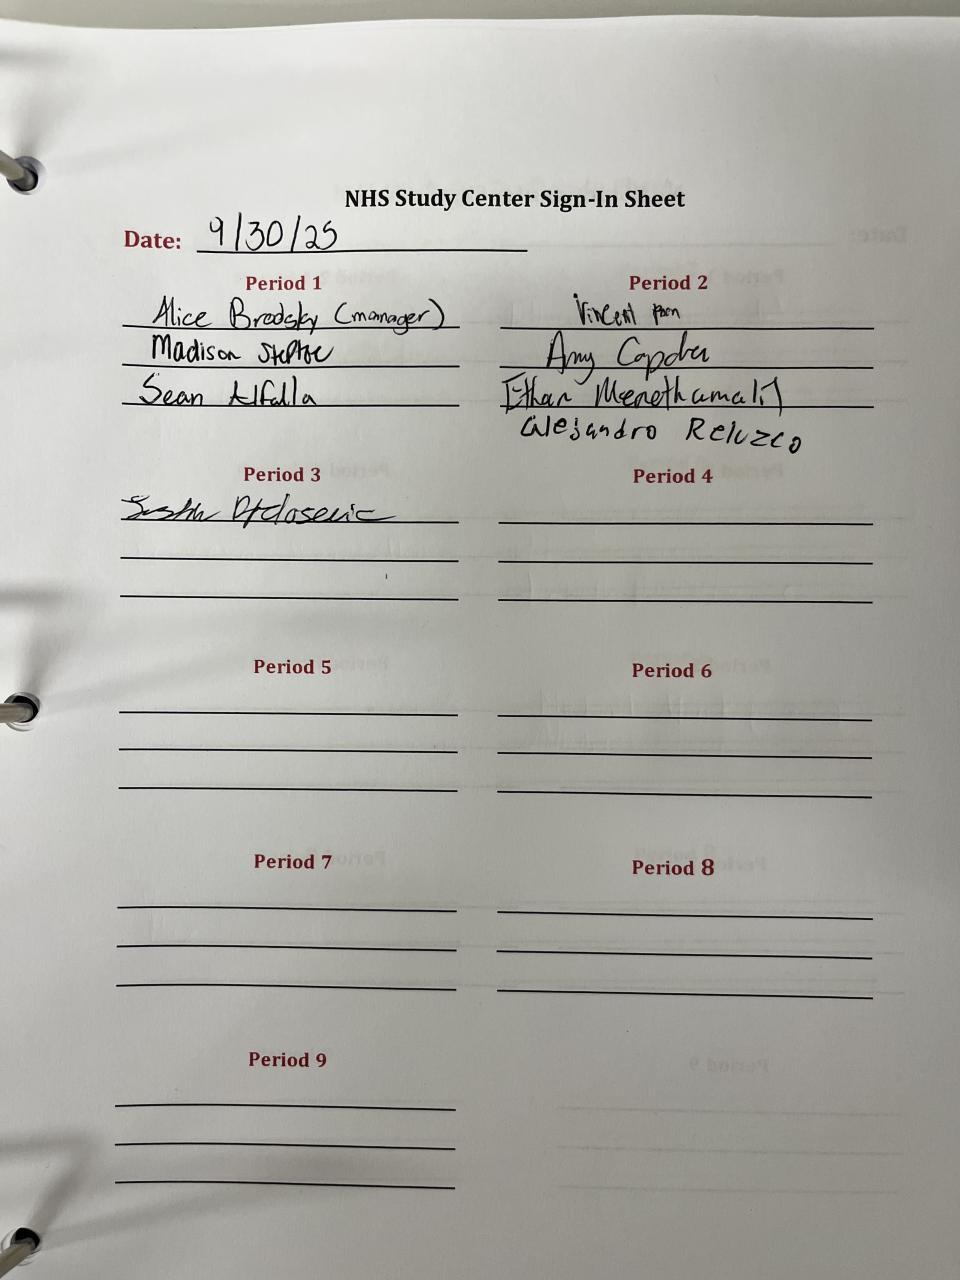 NHS Study Center Sign-In Sheet
Date: 9/30/25
Period 1
Alice Brodsky (manager)
Madison Steptoe
Sean Alfalla
Period 2
Vincent
Amy
Ethan
Alejandro Reluzco
Period 3
Period 4
Period 5
Period 6
Period 7
Period 8
Period 9